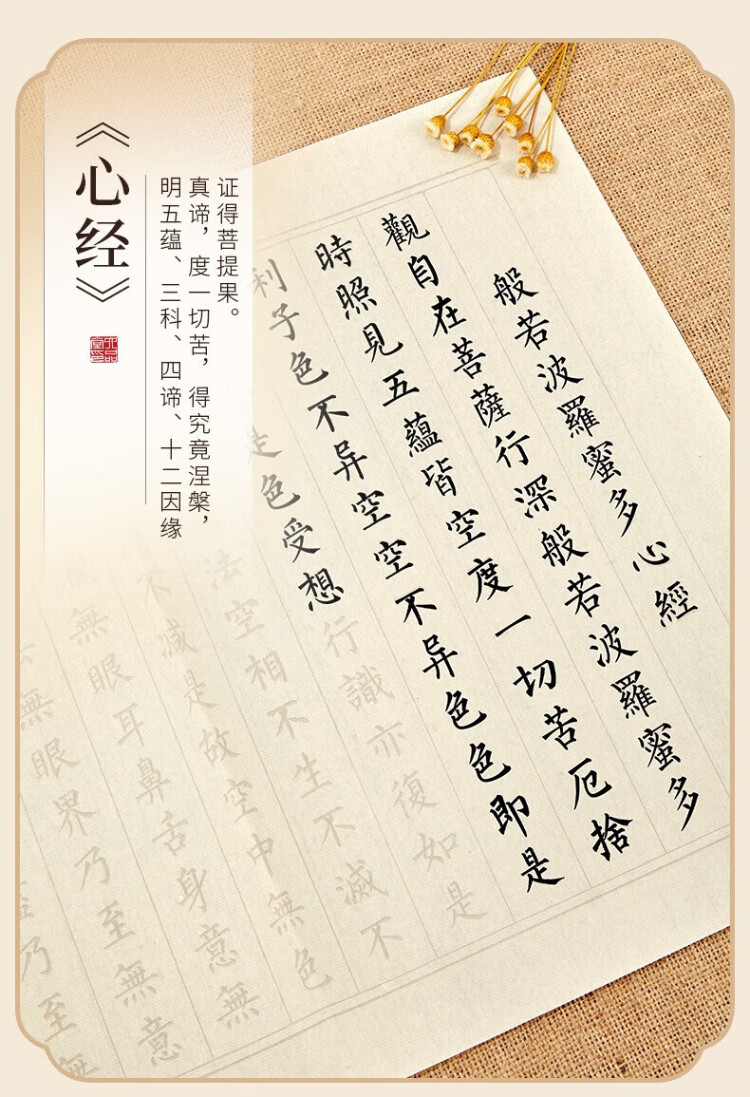 《心经》
明五蕴、三科、四谛、十二因缘
真谛，度一切苦，得究竟涅槃，
证得菩提果。
般若波羅蜜多心經
觀自在菩薩行深般若波羅蜜多
時照見五蘊皆空度一切苦厄捨
利子色不异空空不异色色即是
是色受想行識亦復如是
法空相不生不滅不
不減是故空中無色
無眼耳鼻舌身意無
無眼界乃至無意
乃至無